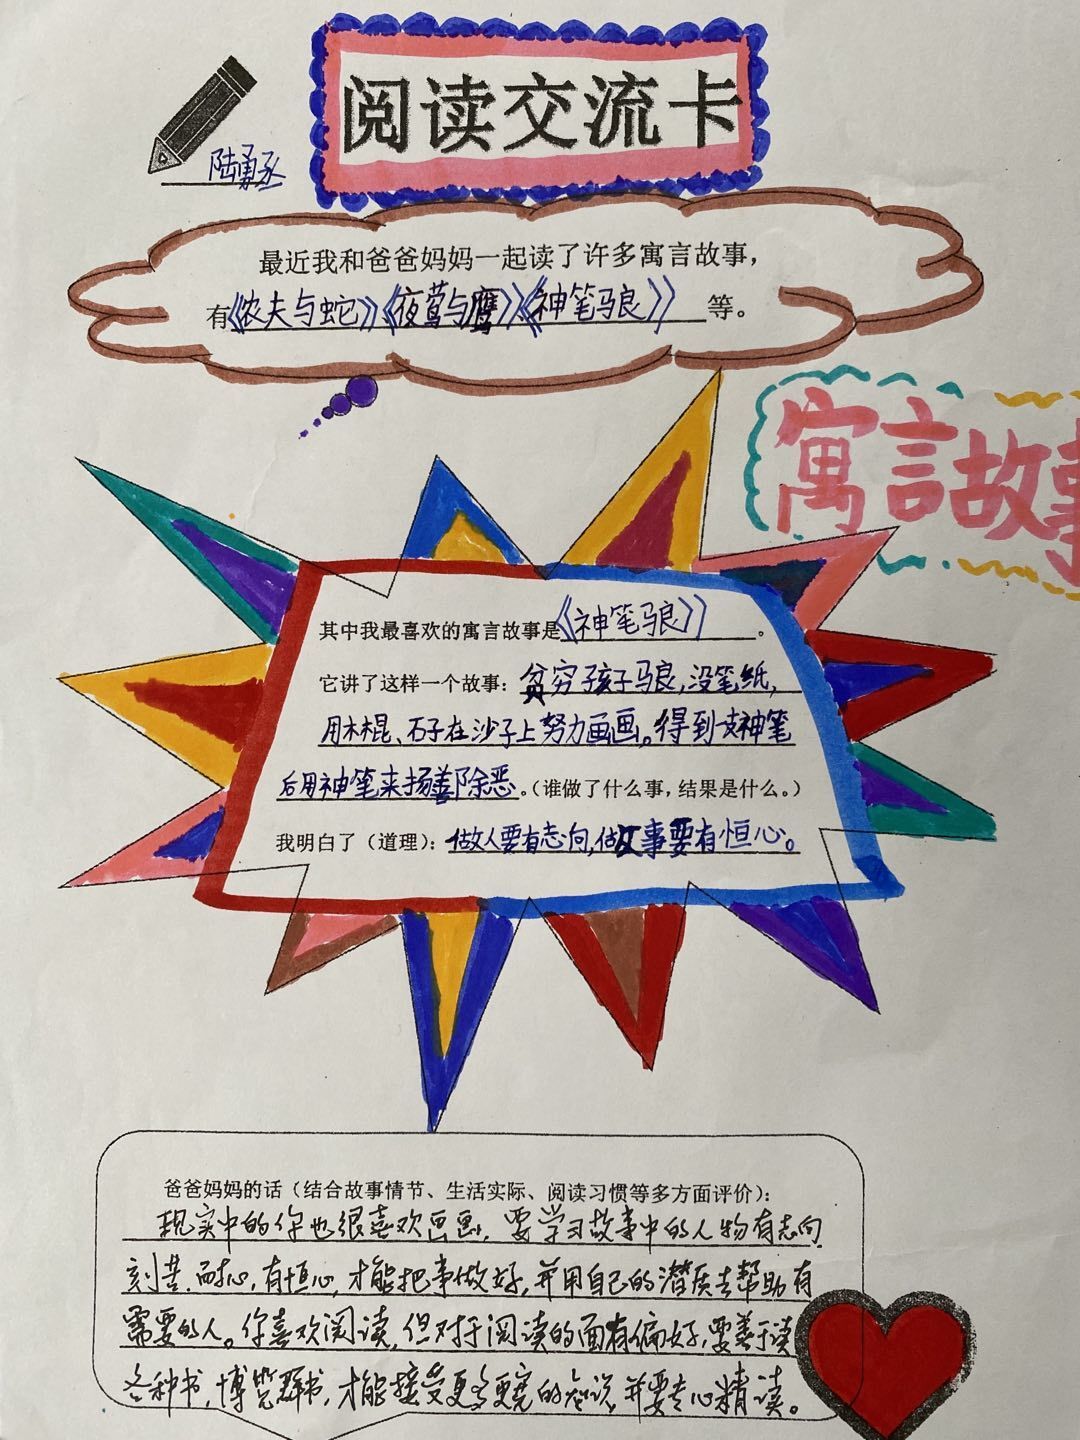 阅读交流卡
陆勇丞
最近我和爸爸妈妈一起读了许多寓言故事，
有《农夫与蛇》《夜莺与鹰》、《神笔马良》等。
寓言故事
其中我最喜欢的寓言故事是《神笔马良》。
它讲了这样一个故事：贫穷孩子马良，没笔纸，
用木棍、石子在沙子上努力画画。得到支神笔
后用神笔来扬善除恶。（谁做了什么事，结果是什么。）
我明白了（道理）：做人要有志向，做事要有恒心。
爸爸妈妈的话（结合故事情节、生活实际、阅读习惯等多方面评价）：
现实中的你也很喜欢画画，要学习故事中的人物有志向
刻苦、耐心，有恒心，才能把事做好，并用自己的潜质去帮助有
需要的人。你喜欢阅读，但对于阅读的面有偏好，要善于读
各种书，博览群书，才能接受更多更宽的知识，并要专心精读。